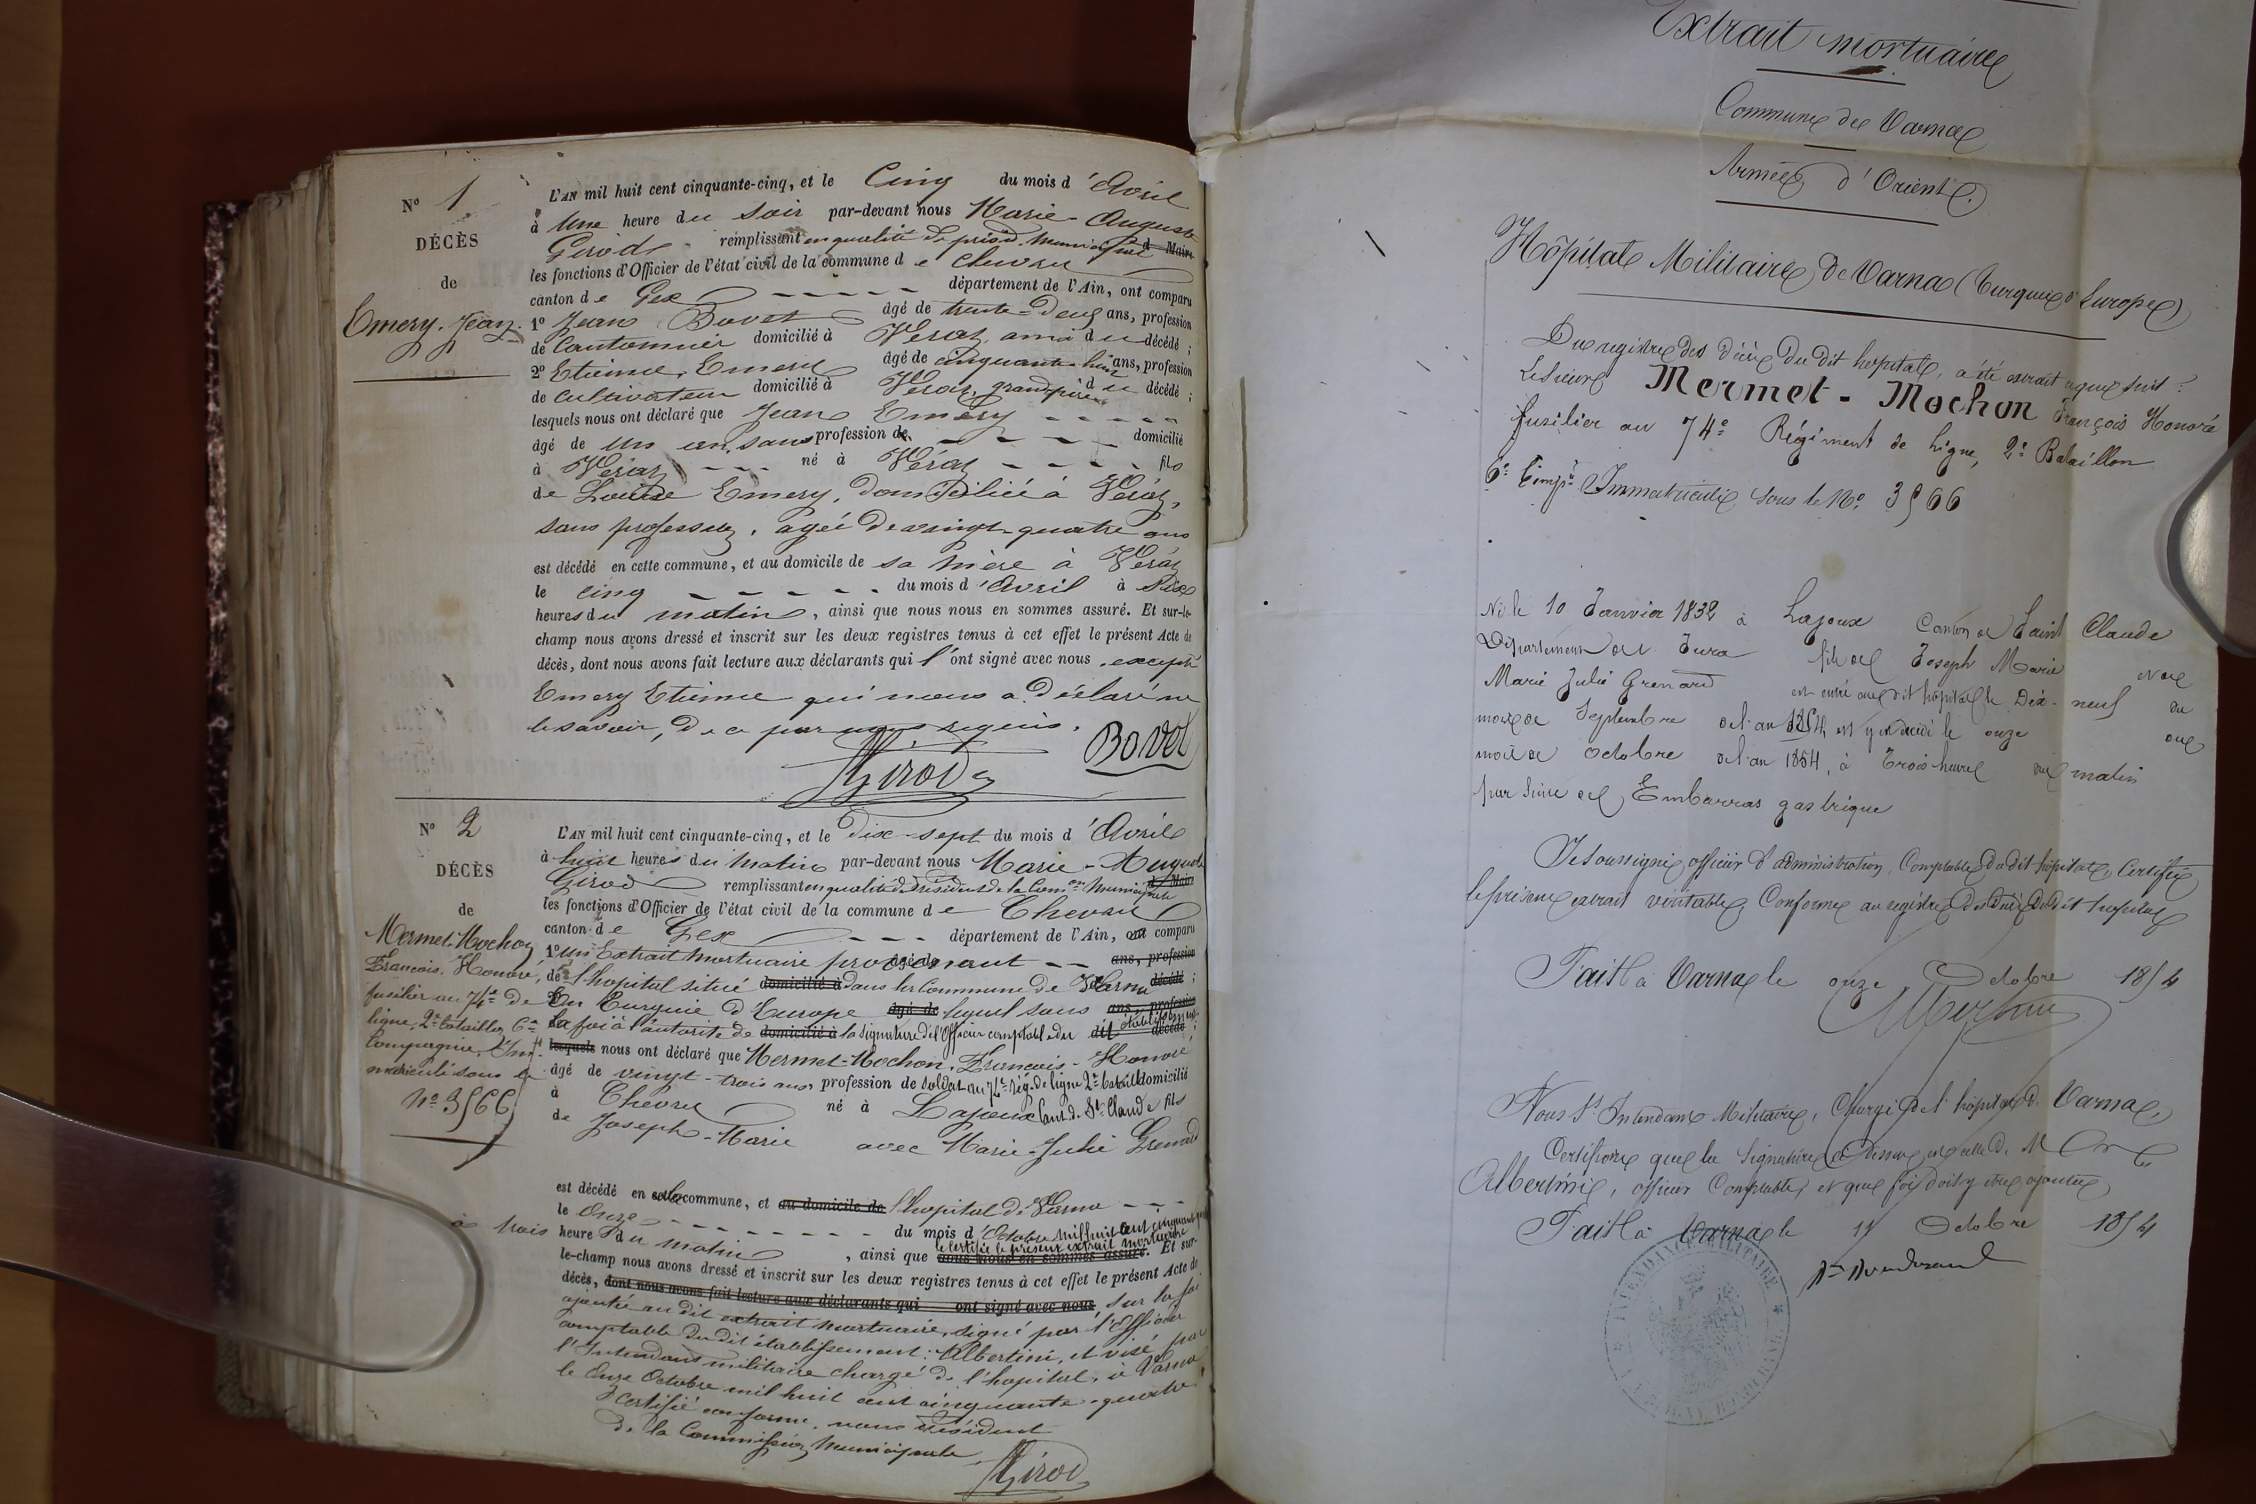 N° 1
DÉCÈS
de
Emery. Jean.
L'AN mil huit cent cinquante-cinq, et le Cinq du mois d'Avril
à Une heure du soir par-devant nous Marie-Auguste
Girod remplissant en qualité de présid. municipal d Maire
les fonctions d'Officier de l'état civil de la commune de Chevry
canton de Gex département de l'Ain, ont comparu
1° Jean Bovet âgé de trente-deux ans, profession
de Cantonnier domicilié à Véraz, ami du décédé ;
2° Etienne Emery âgé de cinquante-huit ans, profession
de cultivateur domicilié à Véraz, grand père du décédé ;
lesquels nous ont déclaré que Jean Emery
âgé de un an, sans profession de domicilié
à Véraz né à Véraz fils
de Louise Emery, domiciliée à Véraz,
sans profession, agée de vingt-quatre ans
est décédé en cette commune, et au domicile de sa mère à Véraz
le cinq du mois d'Avril à Dix
heures du matin, ainsi que nous nous en sommes assuré. Et sur-le-
champ nous avons dressé et inscrit sur les deux registres tenus à cet effet le présent Acte de
décès, dont nous avons fait lecture aux déclarants qui l'ont signé avec nous, excepté
Emery Etienne qui nous a déclaré ne
le savoir, de ce par nous requis.
Bovet
Girod
N° 2
DÉCÈS
de
Mermet-Mochon
François Honoré,
fusilier au 74e de
ligne, 2e bataillon 6e
Compagnie, Im-
matriculé sous le
N° 3566
L'AN mil huit cent cinquante-cinq, et le dix-sept du mois d'Avril
à huit heures du matin par-devant nous Marie-Auguste
Girod remplissant en qualité de Président de la Comon municipale d Maire
les fonctions d'Officier de l'état civil de la commune de Chevry
canton de Gex département de l'Ain, ont comparu
1° un Extrait mortuaire provenant âgé de ans, profession
de l'hopital situé domicilié à dans la Commune de Varna décédé ;
En Turquie d'Europe âgé de lequel sous ans, profession
la foi à l'autorité de domicilié à la signature de l'Officier comptable du dit établissement décédé ;
lesquels nous ont déclaré que Mermet-Mochon, François-Honoré
âgé de vingt-trois ans, profession de soldat au 74e rég. de ligne 2e bataill. domicilié
à Chevry né à Lajoux Cant. d. St Claude fils
de Joseph-Marie avec Marie-Julie Grenard
est décédé en cette la commune, et au domicile de l'hopital de Varna
le Onze du mois d'Octobre mil huit cent cinquante
à trois heure du matin, ainsi que le certifie le présent extrait mortuaire nous nous en sommes assuré. Et sur-
le-champ nous avons dressé et inscrit sur les deux registres tenus à cet effet le présent Acte de
décès, dont nous avons fait lecture aux déclarants qui ont signé avec nous, sur la foi
ajoutée au dit extrait mortuaire, signé par l'Officier
comptable du dit établissement : Albertini, et visé par
l'Intendant militaire chargé de l'hopital, à Varna
le Onze Octobre mil huit cent cinquante-quatre
Certifié conforme, nous Président
de la Commission municipale,
Girod
Extrait mortuaire
Commune de Varna
Armée d'Orient.
Hôpital Militaire de Varna (Turquie d'Europe)
Du registre des décès du dit hopital, a été extrait ce que suit :
Le sieur Mermet-Mochon François Honoré
fusilier au 74e Régiment de Ligne, 2e Bataillon
6e Compie Immatriculé sous le No. 3566
Né le 10 Janvier 1832 à Lajoux Canton de Saint Claude
Département du Jura fils de Joseph Marie et de
Marie Julie Grenard est entré au dit hôpital le Dix-neuf du
mois de Septembre de l'an 1854 et y est décédé le onze du
mois de Octobre de l'an 1854, à Trois heures du matin
par suite de Embarras gastrique
Je soussigné officier d'administration, Comptable du dit hôpital, Certifie
le présent extrait véritable, Conforme au registre des Décès du dit hopital
Fait à Varna le onze Octobre 1854
Nous Ss Intendant Militaire, Chargé de l'hôpital de Varna,
Certifions que la Signature ci Dessus est celle de M
Albertini, officier Comptable, et que foi doit y être ajoutée
Fait à Varna le 11 Octobre 1854
INTENDANCE MILITAIRE